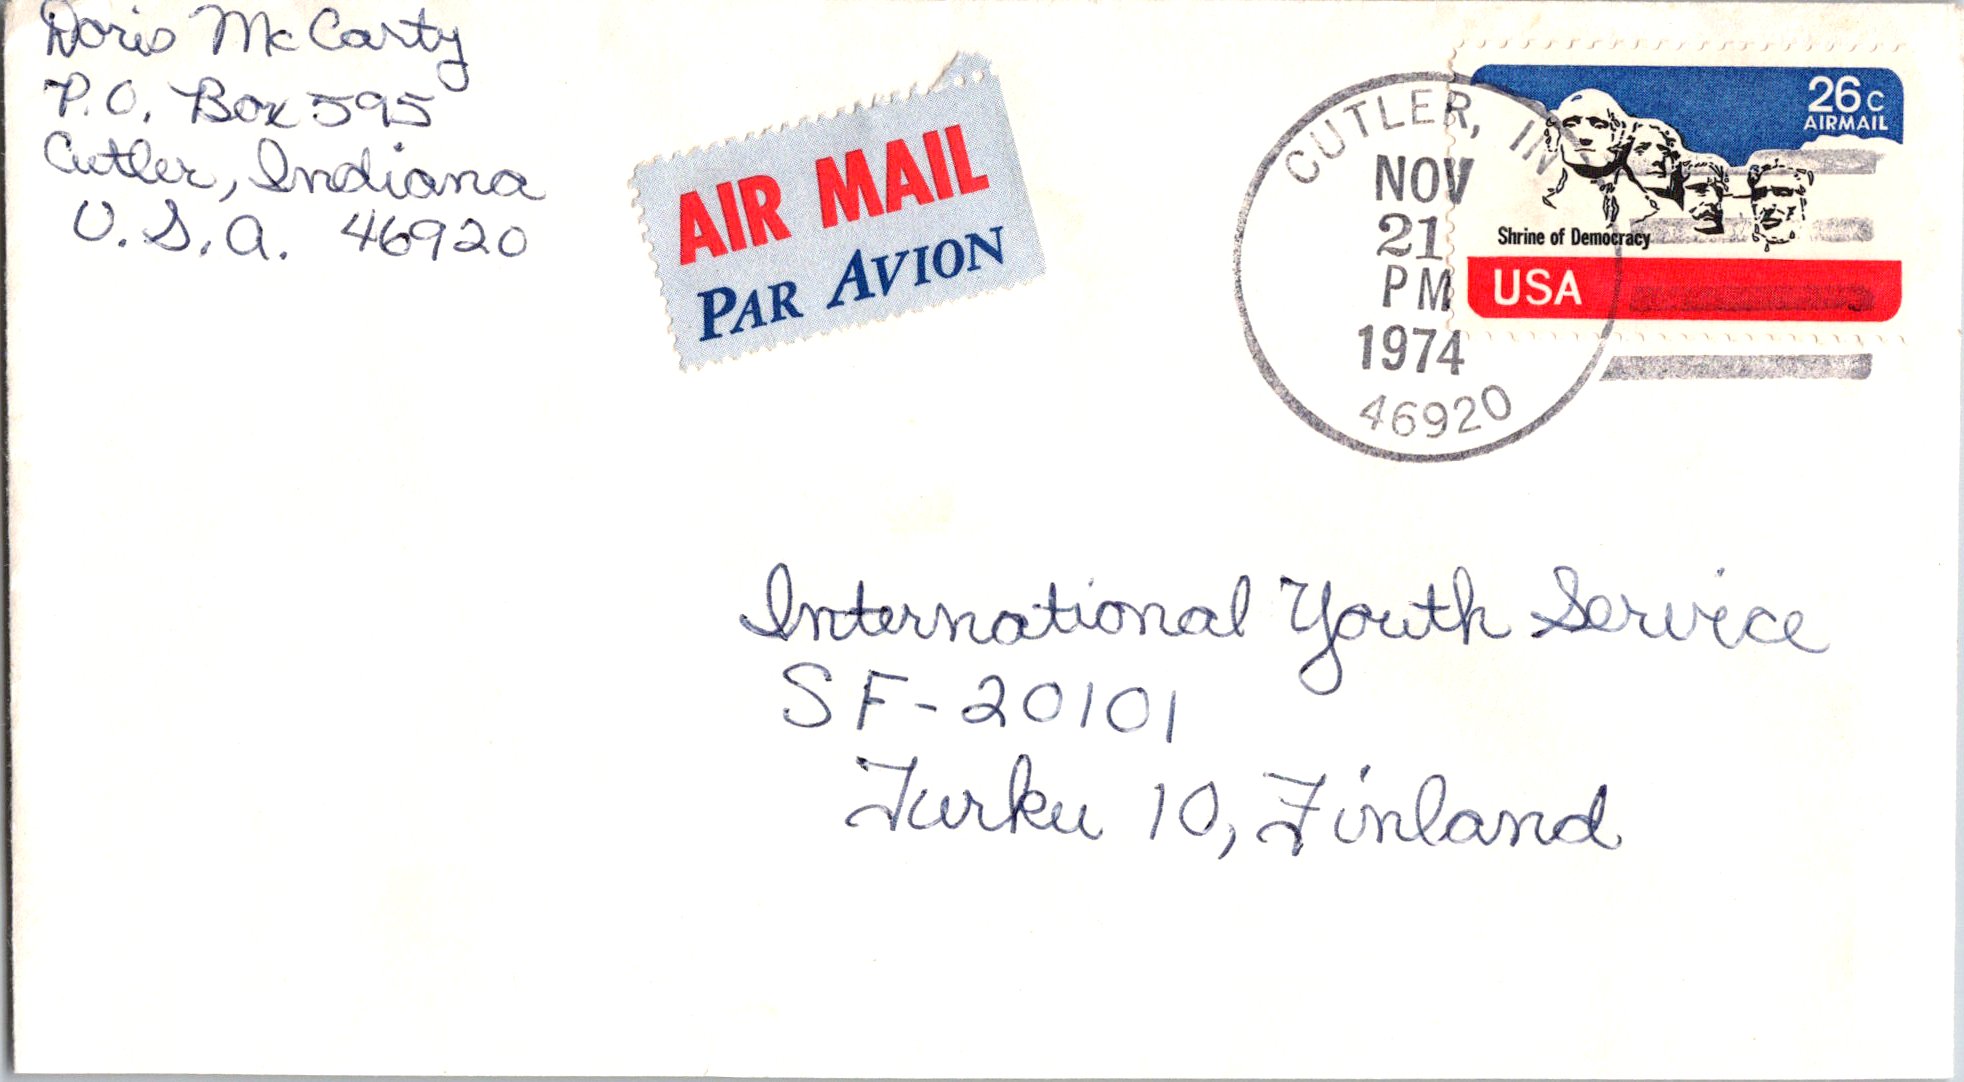 Doris McCarty
P.O. Box 595
Cutler, Indiana
U.S.A. 46920
AIR MAIL
PAR AVION
CUTLER, IN
NOV
21
PM
1974
46920
26c
AIRMAIL
Shrine of Democracy
USA
International Youth Service
SF-20101
Turku 10, Finland